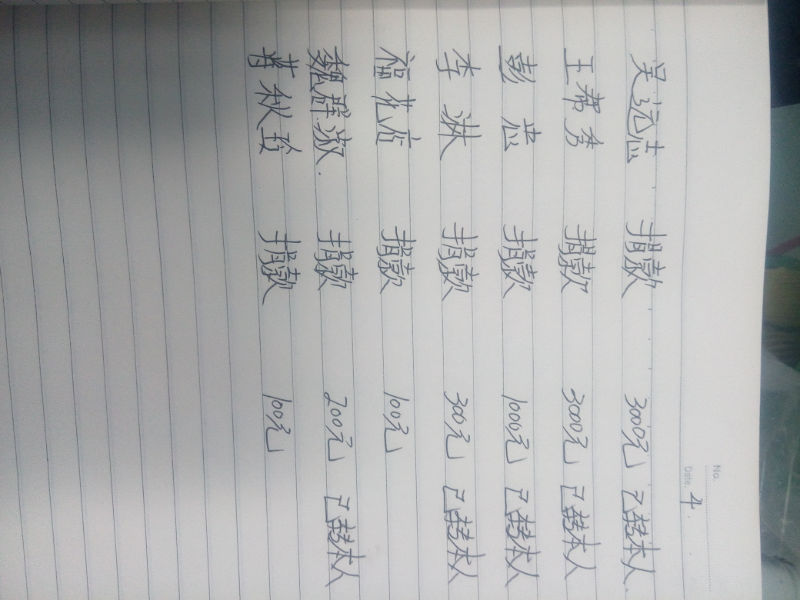 No.
Date. 4.
吴远志 捐款 3000元 已转本人.
王帮秀 捐款 3000元 已转本人
彭忠 捐款 1000元 已转本人
李淋 捐款 300元 已转本人
福花店 捐款 100元
魏群淑. 捐款 200元 已转本人
黄秋玲 捐款 100元